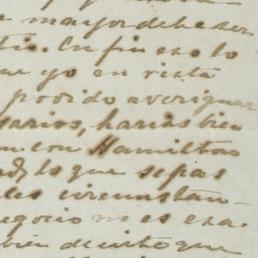 mayor debe ser
En fin eso lo
que yo en vista
podido averiguar
sarios, harias bien
con Hamilton
lo que sepas
les circunstan-
negocio no es esa
bien decirte que